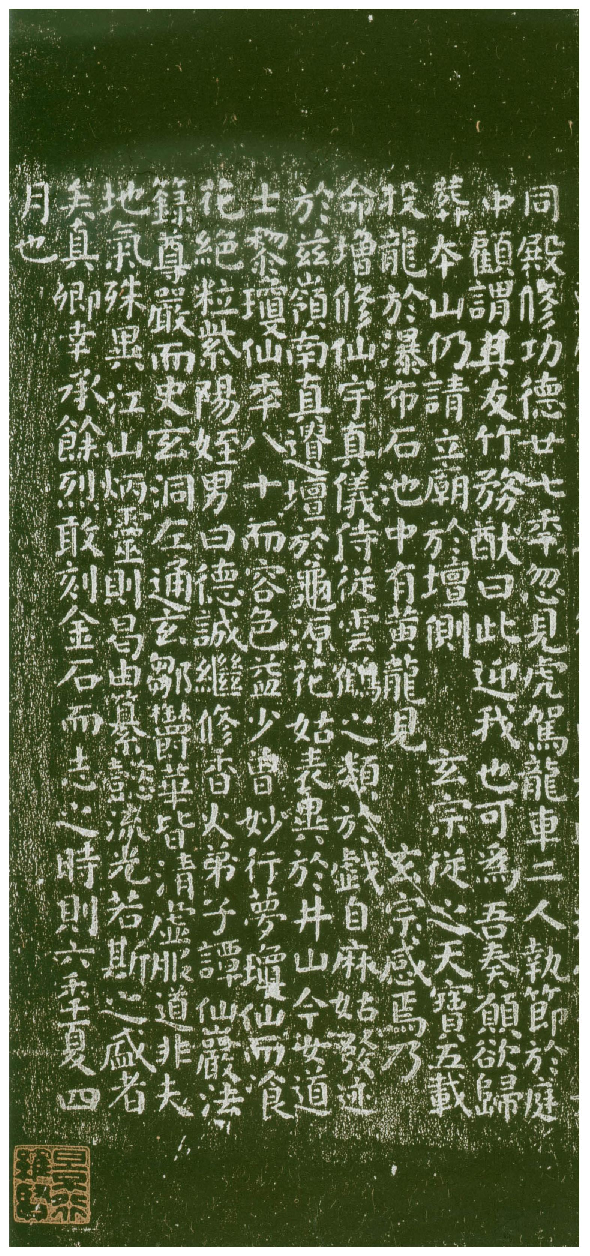 同殿修功德廿七年忽見虎駕龍車二人執節於庭
中顧謂其友竹務猷曰此迎我也可為吾奏願欲歸
葬本山仍請立廟於壇側　玄宗從之天寶五載
投龍於瀑布石池中有黃龍見　玄宗感焉乃
命增修仙宇真儀侍從雲鶴之類於戲自麻姑發迹
於茲嶺南真遺壇於龜源花姑表異於井山今女道
士黎瓊仙年八十而容色益少曾妙行夢瓊仙而飡
花絕粒紫陽姪男曰德誠繼修香火弟子譚仙巖法
籙尊嚴而史玄洞左通玄鄒鬱華皆清虛服道非夫
地氣殊異江山炳靈則曷由纂懿流光若斯之盛者
矣真卿幸承餘烈敢刻金石而志之時則六年夏四
月也